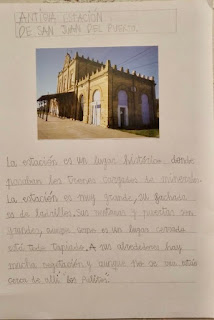 ANTIGUA ESTACIÓN
DE SAN JUAN DEL PUERTO
La estación es un lugar histórico donde
paraban los trenes cargados de minerales.
La estación es muy grande, su fachada
es de ladrillos. Sus ventanas y puertas son
grandes, aunque como es un lugar cerrado
está todo tapiado. A sus alrededores hay
mucha vegetación y aunque no se vea está
cerca de allí "los